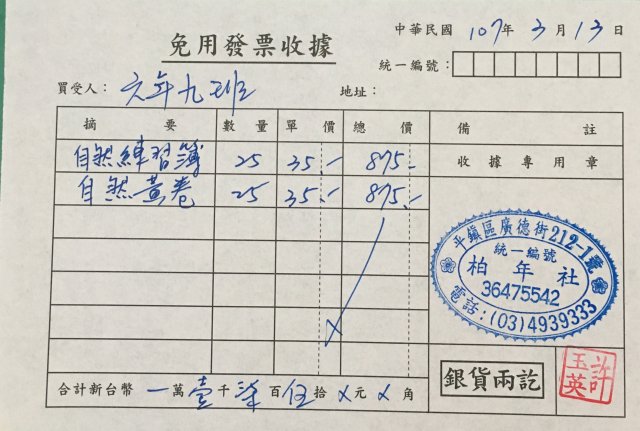 中華民國 107年 3月 13日
免用發票收據
統一編號：
買受人： 六年九班 地址：
摘要 數量 單價 總價 備註
自然練習簿 25 35.- 875.-
收據專用章
自然黃卷 25 35.- 875.-
平鎮區廣德街212-1號
統一編號
柏年社
36475542
電話：(03)4939333
銀貨兩訖
許玉英
合計新台幣 一萬壹千柒百伍拾X元X角